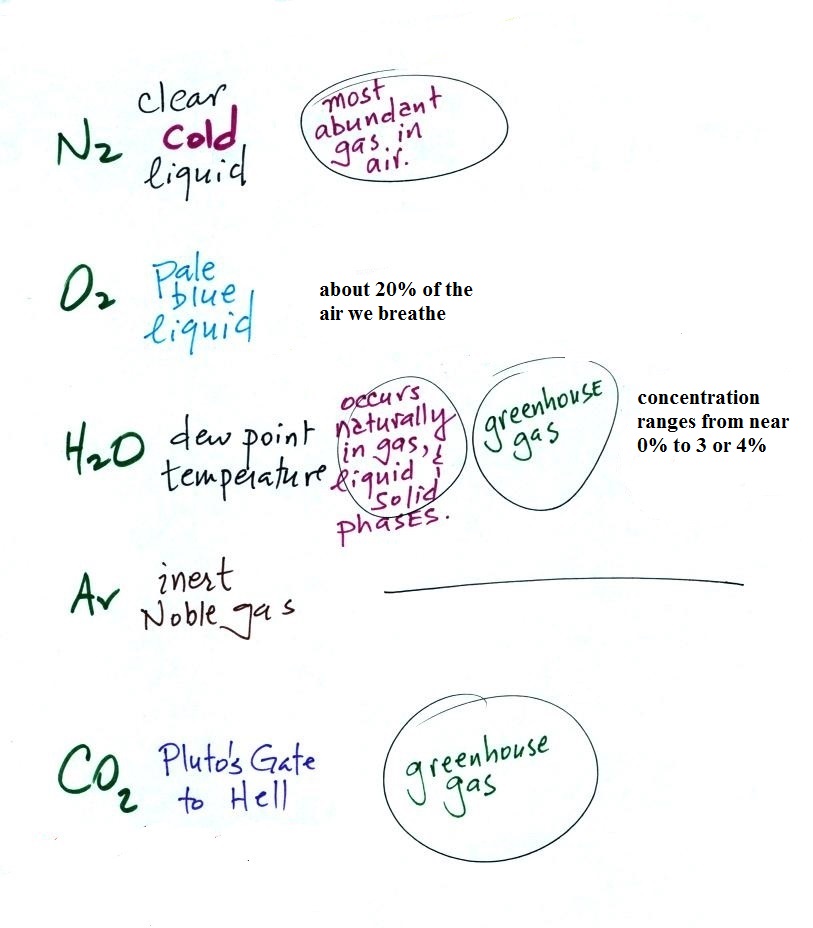 clear
N2 cold
liquid
most
abundant
gas in
air.
O2 Pale
blue
liquid
about 20% of the
air we breathe
H2O dew point
temperature
occurs
naturally
in gas,
liquid &
solid
phases.
greenhouse
gas
concentration
ranges from near
0% to 3 or 4%
Ar inert
Noble gas
CO2 Pluto's Gate
to Hell
greenhouse
gas